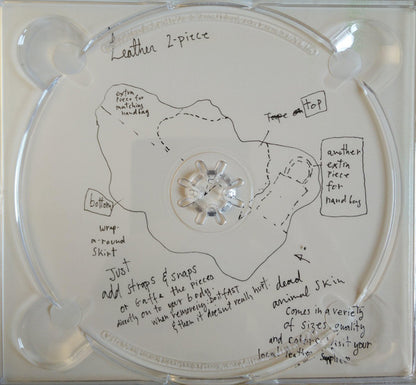 Leather 2-piece
extra
piece for
matching
handbag
top
another
extra
piece
for
handbag
bottom
wrap-
a-round
skirt
Just
add straps & snaps
or Gaffa the pieces
directly on to your body
when removing do it FAST
& then it doesn't really hurt.
dead
animal skin
comes in a variety
of sizes, quality
and colors, visit your
local leather supplier